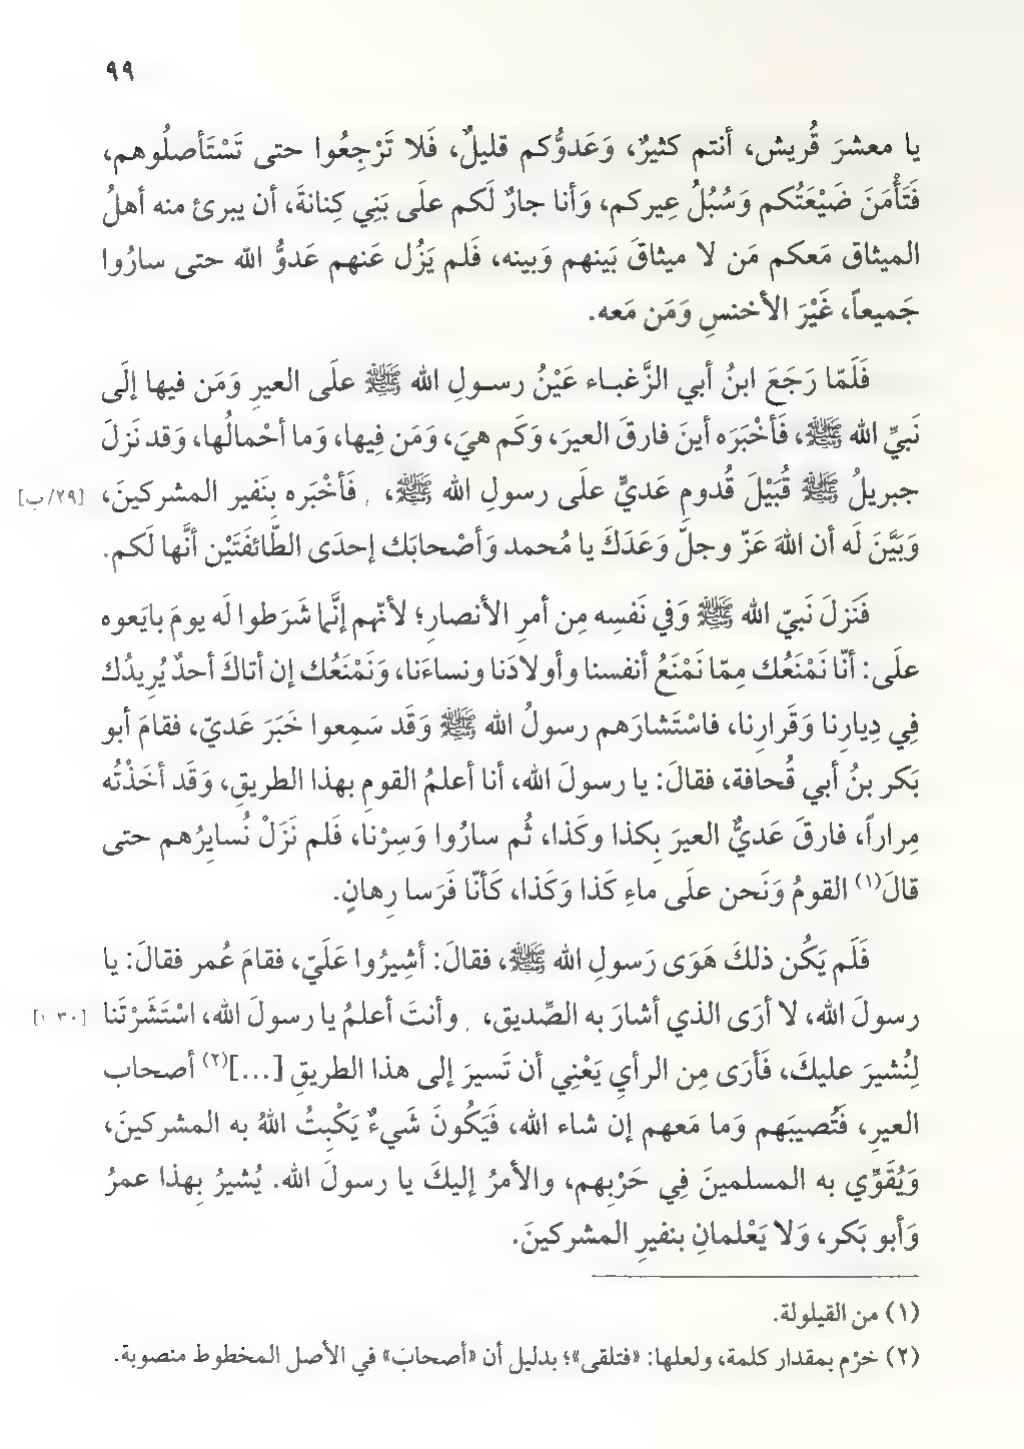 ٩٩
يا معشرَ قُريش، أنتم كثيرٌ، وَعَدوُّكم قليلٌ، فَلا تَرْجِعُوا حتى تَسْتَأصلُوهم،
فَتَأْمَنَ ضَيْعَتُكم وَسُبُلُ عِيركم، وَأنا جارٌ لَكم علَى بَنِي كِنانةَ، أن يبرئ منه أهلُ
الميثاق مَعكم مَن لا ميثاقَ بَينهم وَبينه، فَلم يَزُل عَنهم عَدوُّ الله حتى سارُوا
جَميعاً، غَيْرَ الأخنسِ وَمَن مَعه.
فَلَمّا رَجَعَ ابنُ أبي الزَّغبـاء عَيْنُ رسـولِ الله ﷺ علَى العيرِ وَمَن فيها إلَى
نَبيِّ الله ﷺ، فَأخْبَرَه أينَ فارقَ العيرَ، وَكَم هيَ، وَمَن فِيها، وَما أحْمالُها، وَقد نَزلَ
جبريلُ ﷺ قُبَيْلَ قُدومِ عَديٍّ علَى رسولِ الله ﷺ، فَأخْبَره بِنَفير المشركينَ، [٢٩/ب]
وَبَيَّنَ لَه أن اللهَ عَزّ وجلّ وَعَدَكَ يا مُحمد وَأصْحابَك إحدَى الطّائفَتَيْن أنَّها لَكم.
فَنَزلَ نَبيّ الله ﷺ وَفي نَفسِه مِن أمرِ الأنصارِ؛ لأنّهم إنَّما شَرَطوا لَه يومَ بايَعوه
علَى: أنّا نَمْنَعُك مِمّا نَمْنَعُ أنفسنا وأولادَنا ونساءَنا، وَنَمْنَعُك إن أتاكَ أحدٌ يُرِيدُك
فِي دِيارِنا وَقَرارِنا، فاسْتَشارَهم رسولُ الله ﷺ وَقَد سَمِعوا خَبَرَ عَديّ، فقامَ أبو
بَكر بنُ أبي قُحافة، فقالَ: يا رسولَ الله، أنا أعلمُ القومِ بهذا الطريقِ، وَقَد أخَذْتُه
مِراراً، فارقَ عَديٌّ العيرَ بِكذا وكَذا، ثُم سارُوا وَسِرْنا، فَلم نَزَلْ نُسايِرُهم حتى
قالَ(١) القومُ وَنَحن علَى ماءِ كَذا وَكَذا، كَأنّا فَرَسا رِهانٍ.
فَلَم يَكُن ذلكَ هَوَى رَسولِ الله ﷺ، فقالَ: أشِيرُوا عَلَيّ، فقامَ عُمر فقالَ: يا
رسولَ الله، لا أرَى الذي أشارَ به الصِّديق، وأنتَ أعلمُ يا رسولَ الله، اسْتَشَرْتَنا [٣٠-١]
لِنُشيرَ عليكَ، فَأرَى مِن الرأيِ يَعْنِي أن تَسيرَ إلى هذا الطريقِ [...](٢) أصحاب
العيرِ، فَتُصيبَهم وَما مَعهم إن شاء الله، فَيَكُونَ شَيءٌ يَكْبِتُ اللهُ به المشركينَ،
وَيُقَوِّي به المسلمينَ فِي حَرْبِهم، والأمرُ إليكَ يا رسولَ الله. يُشيرُ بِهذا عمرُ
وَأبو بَكر، وَلا يَعْلمانِ بنفيرِ المشركينَ.
(١) من القيلولة.
(٢) خرْم بمقدار كلمة، ولعلها: «فتلقى»؛ بدليل أن «أصحابَ» في الأصل المخطوط منصوبة.